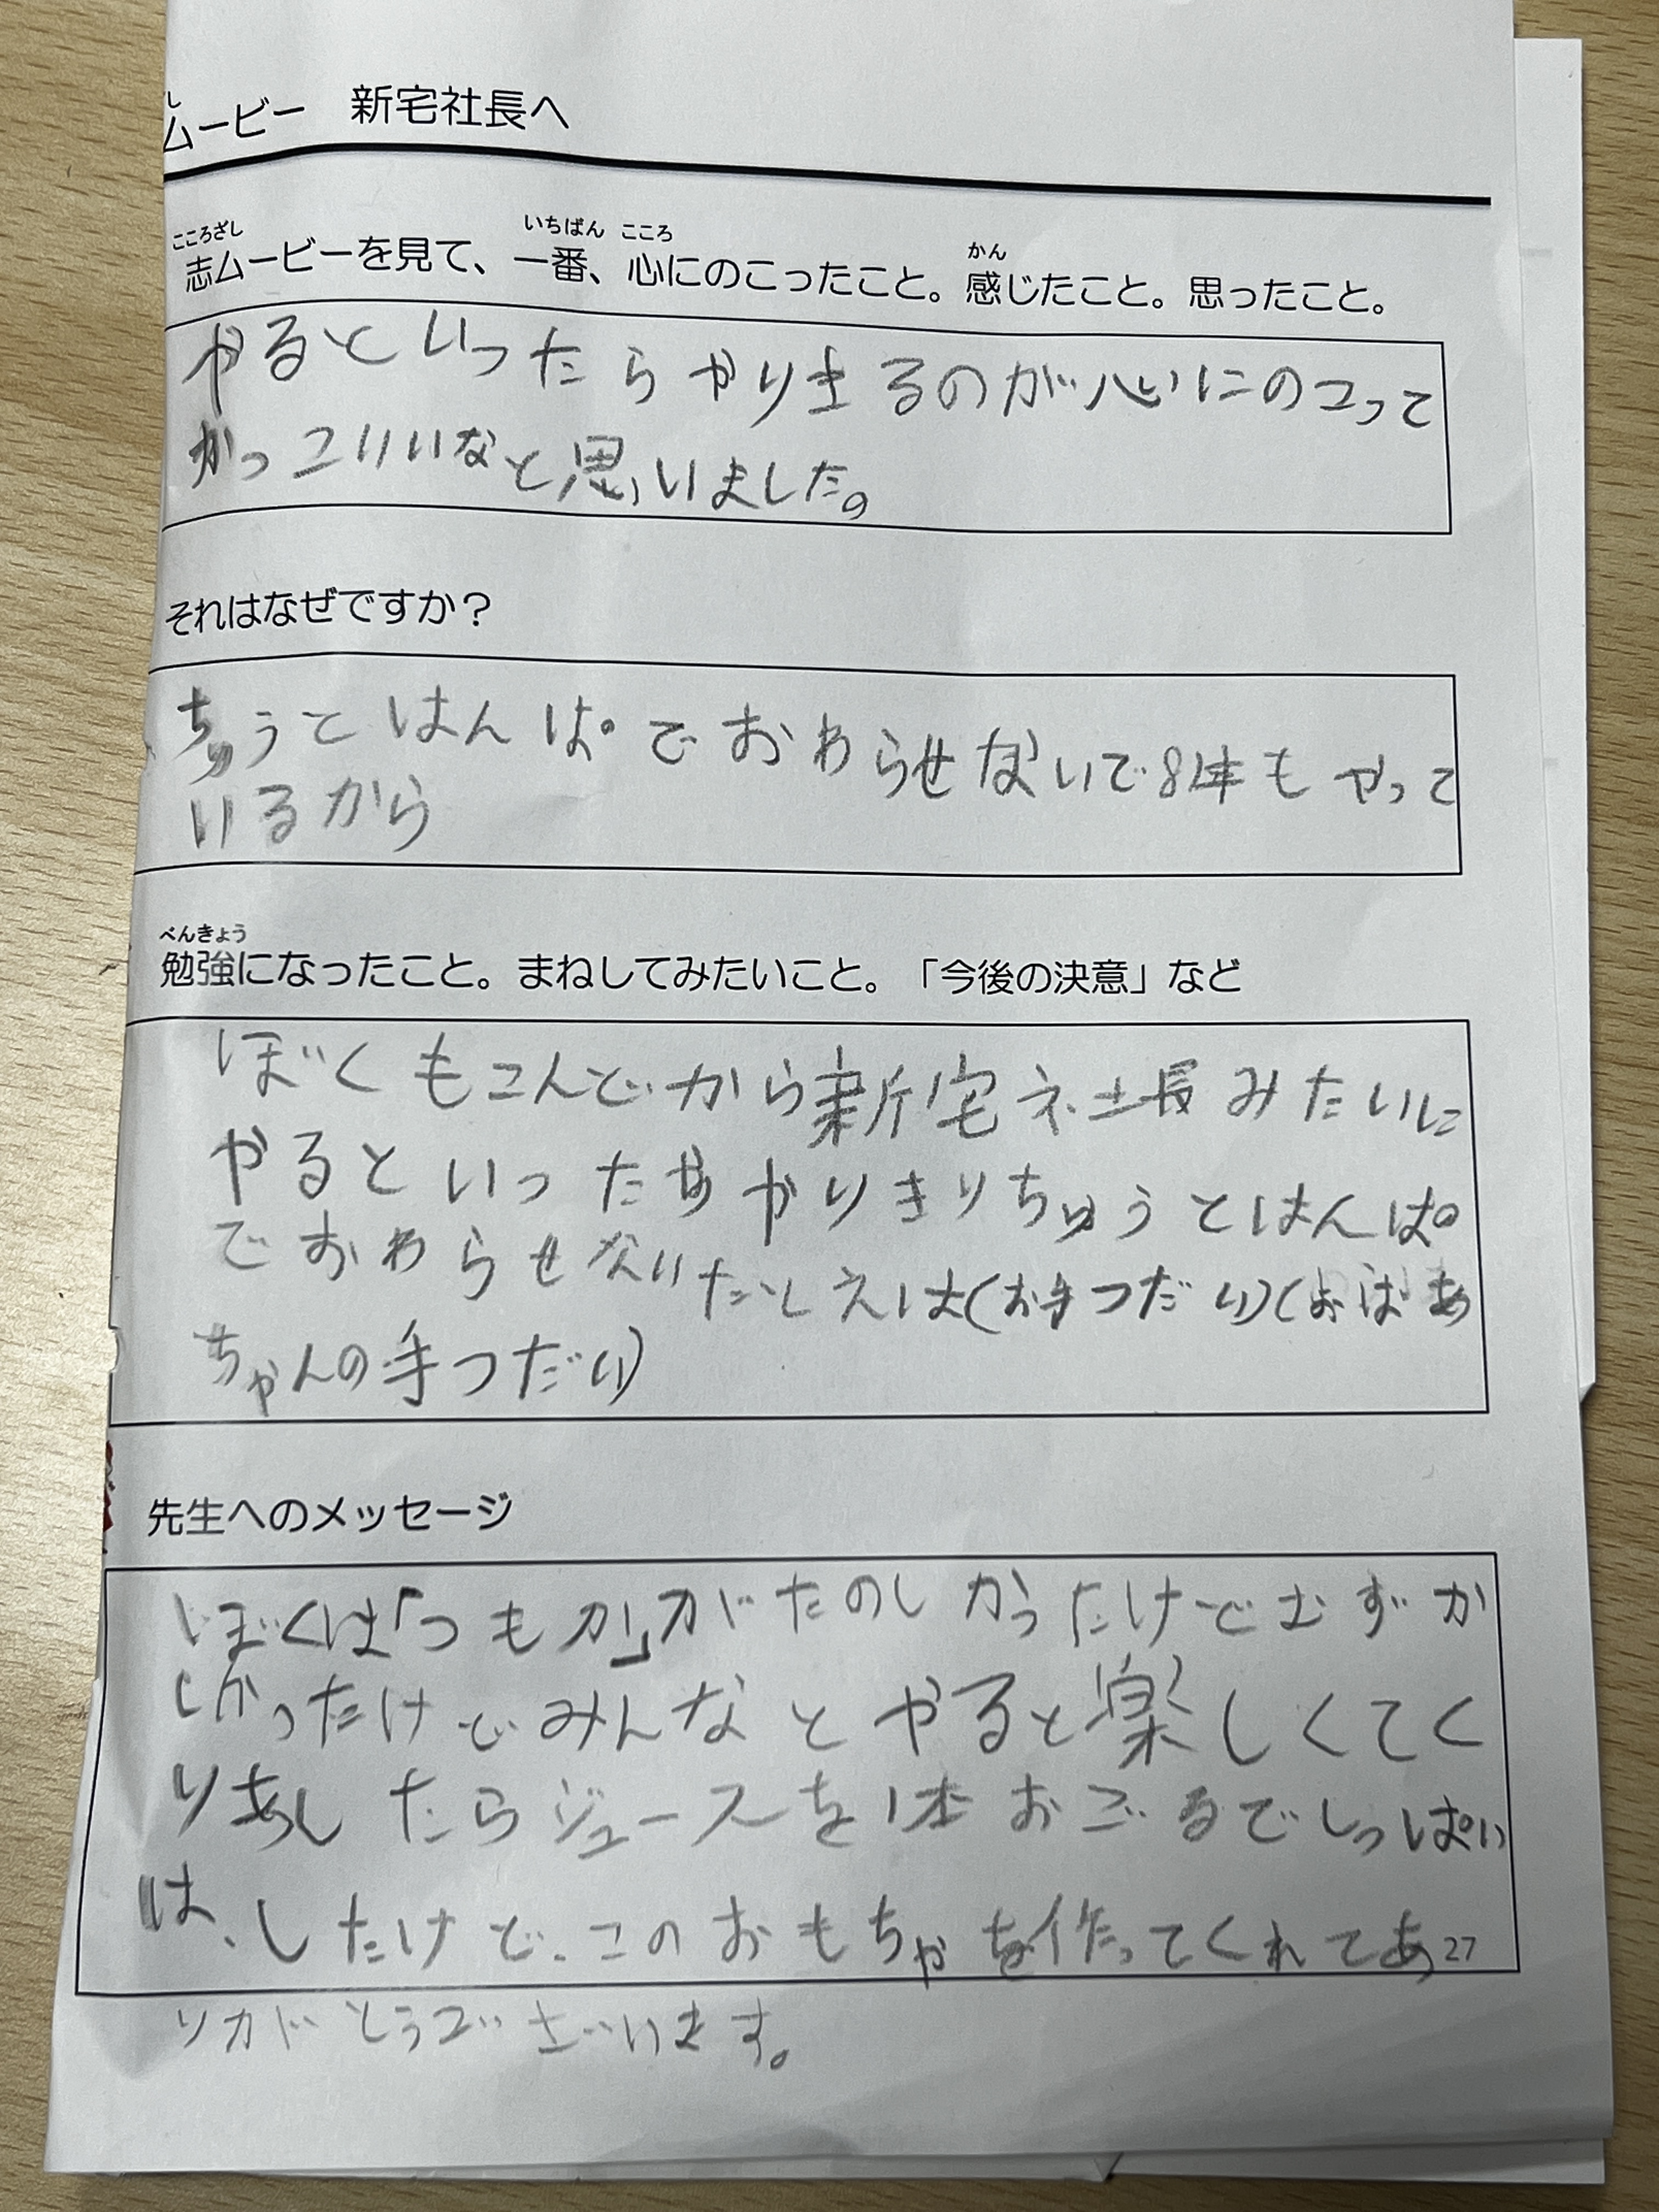 ムービー　新宅社長へ
こころざし　いちばん　こころ　かん
志ムービーを見て、一番、心にのこったこと。感じたこと。思ったこと。
やるといったらやりきるのが心にのコって
かっコいいなと思いました。
それはなぜですか？
ちゅうとはんぱでおわらせないで8年もやって
いるから
べんきょう
勉強になったこと。まねしてみたいこと。「今後の決意」など
ぼくもこんどから新宅社長みたいに
やるといったらやりきりちゅうとはんぱ
でおわらせないたとえは(お手つだい)(おばあ
ちゃんの手つだい)
先生へのメッセージ
ぼくは「つもか」がたのしかったけどむずか
しかったけどみんなとやると楽しくてく
りあしたらジュースを1本おごるでしっぱい
は、したけど、このおもちゃを作ってくれてあ
りがとうございます。
27